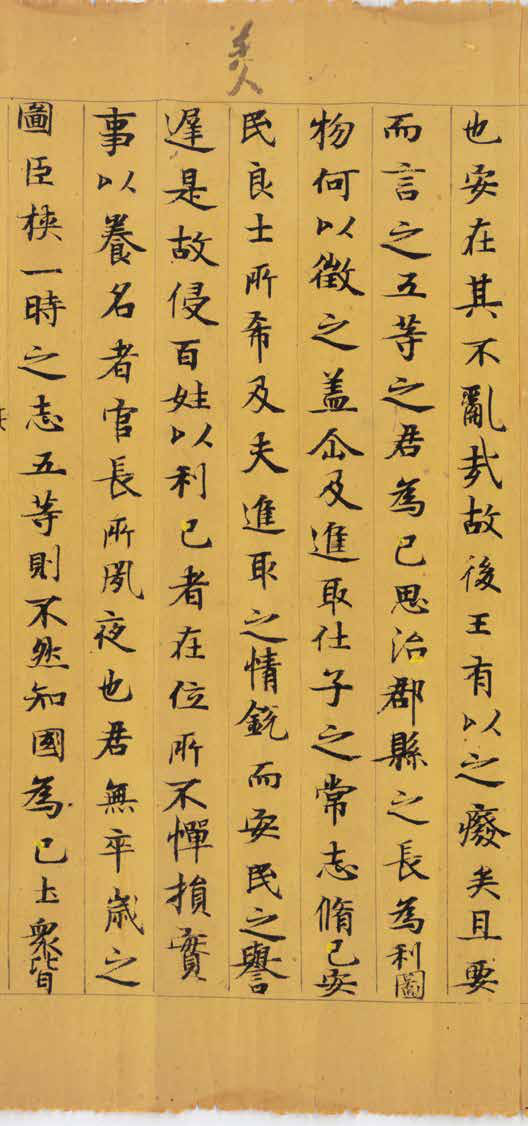 也安在其不亂哉故後王有以之癈矣且要
而言之五等之君為己思治郡縣之長為利圖
物何以徵之盖企及進取仕子之常志脩己安
民良士所希及夫進取之情銳而安民之譽
遲是故侵百姓以利己者在位所不憚損實
事以養名者官長所夙夜也君無卒歳之
圖臣挾一時之志五等則不然知國為己土衆皆